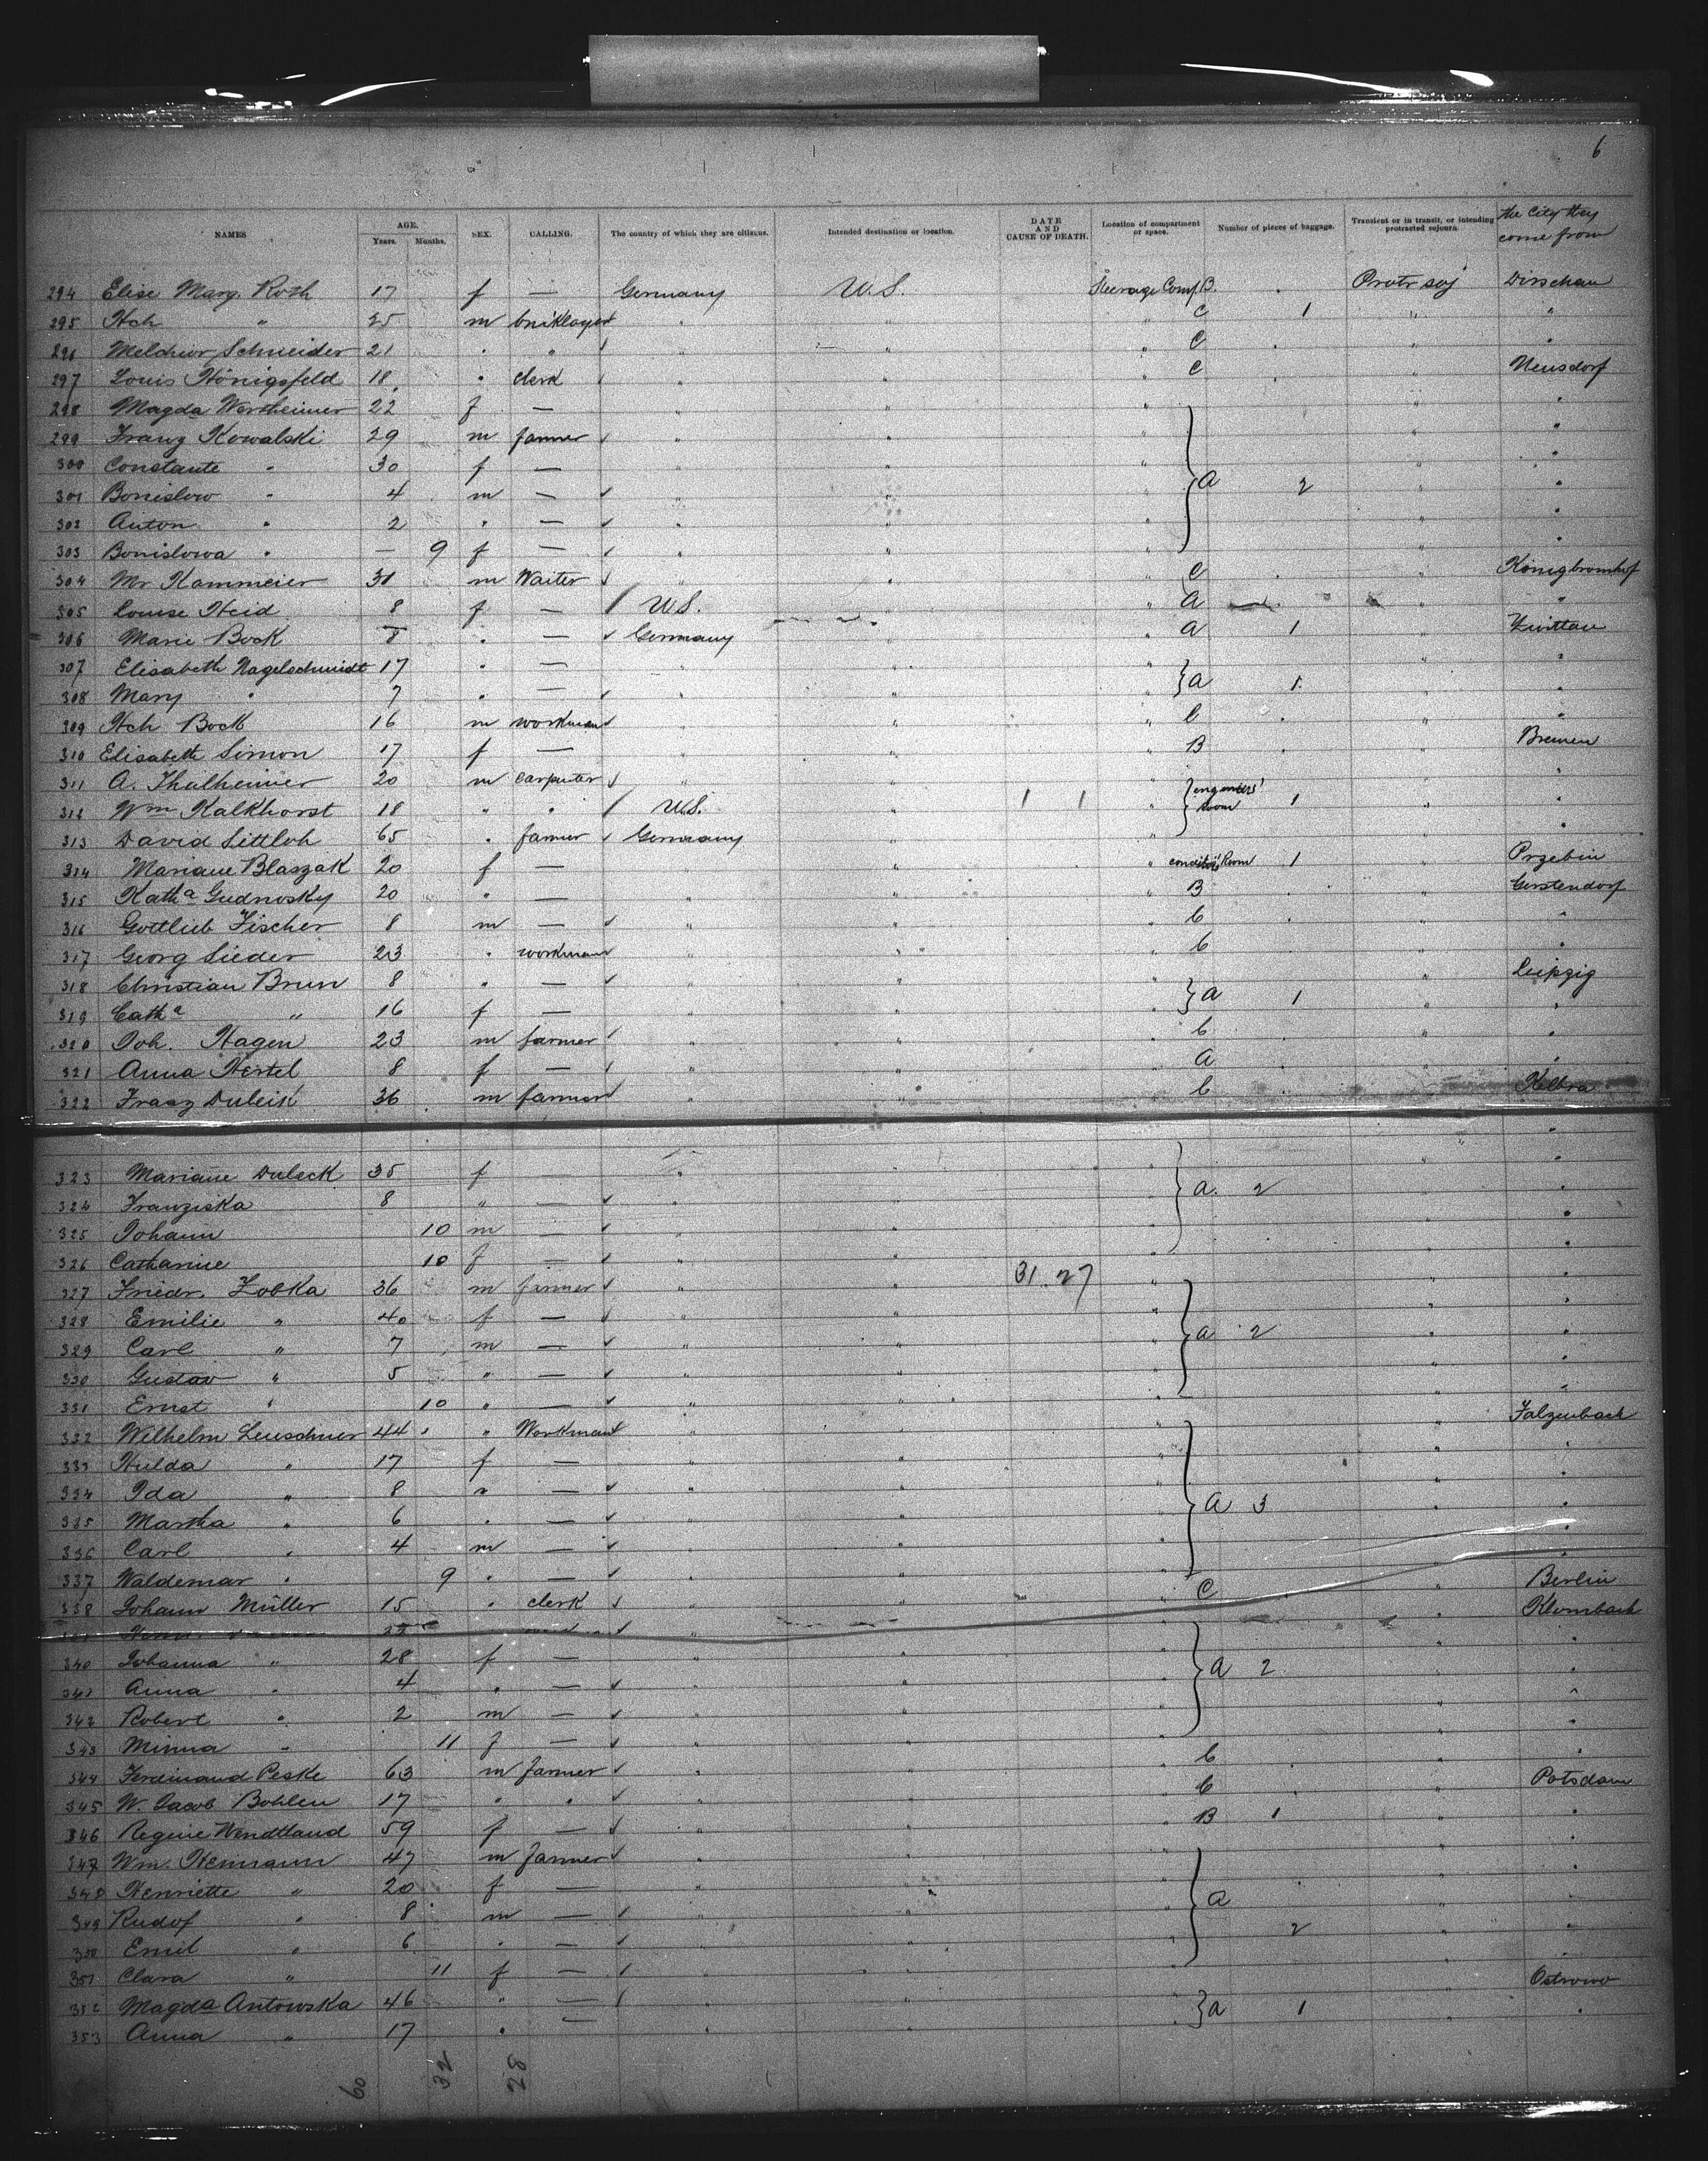 6
NAMES AGE. Years. Months. SEX. CALLING. The country of which they are citizens. Intended destination or location. DATE AND CAUSE OF DEATH. Location of compartment or space. Number of pieces of baggage. Transient or in transit, or intending protracted sojourn. the City they come from
294 Elise Marg. Roth 17 f — Germany U.S. Steerage Comp B. Protr soj Dirschau
295 Hch " 25 m " " " C 1 " "
296 Melchior Schneider 21 " " " " " C " "
297 Louis Königsfeld 18 " clerk " " " C " Neusdorf
298 Magda Wertheimer 22 f — " " " " "
299 Franz Kowalski 29 m farmer " " " " "
300 Constante " 30 f — " " " " "
301 Bonislow " 4 m — " " " A 2 " "
302 Anton " 2 " — " " " " "
303 Bonislowa " — 9 f — " " " " "
304 Mr Kammeier 31 m Waiter " " " C "
305 Louise Heid 8 f — U.S. " A "
306 Marie Bock 8 " — Germany " " A 1 " Zwittau
307 Elisabeth Nagelschmidt 17 " — " " " " "
308 Mary " 7 " — " " " A 1 " "
309 Hch Bock 16 m workman " " " C " "
310 Elisabeth Simon 17 f — " " " B " Bremen
311 A. Thalheimer 20 m carpenter " " " " "
312 Wm Kalkhorst 18 " " U.S. " 1 1 " engeneers' Room 1 " "
313 David Littloh 65 " farmer Germany " " " "
314 Mariane Blaszak 20 f — " " " Room 1 " Przebin
315 Katha Gudnosky 20 " — " " " B " Gerstendorf
316 Gottlieb Fischer 8 m — " " " C " "
317 Georg Sieder 23 " workman " " " C " "
318 Christian Brun 8 " — " " " " Leipzig
319 Catha " 16 f — " " " A 1 " "
320 Joh. Hagen 23 m farmer " " " C " "
321 Anna Hertel 8 f — " " " A " "
322 Franz Duleik 36 m farmer " " " C " Kelbra
323 Mariane Duleck 35 f — " " " " "
324 Franziska 8 " — " " " A. 2 " "
325 Johann 10 m — " " " " "
326 Catharine 10 f — " " " " "
327 Friedr. Zobka 36 m farmer " " 31. 27 " " "
328 Emilie " 40 f — " " " " "
329 Carl " 7 m — " " " A 2 " "
330 Gustav " 5 " — " " " " "
331 Ernst " 10 " — " " " " "
332 Wilhelm Leuschner 44 " Workman " " " " Falzenbach
333 Hulda " 17 f — " " " " "
334 Ida " 8 " — " " " " "
335 Martha " 6 " — " " " A 3 " "
336 Carl " 4 m — " " " " "
337 Waldemar " 9 " — " " " " "
338 Johann Müller 15 " clerk " " " C " Berlin
Klombach
340 Johanna " 28 f — " " " " "
341 Anna " 4 " — " " " A 2 " "
342 Robert " 2 m — " " " " "
343 Minna " 11 f — " " " " "
344 Ferdinand Peske 63 m farmer " " " C " "
345 W. Jacob Bohlen 17 " " " " " C " Potsdam
346 Regine Wendtland 59 f — " " " B 1 " "
347 Wm. Hemann 47 m farmer " " " " "
348 Henriette " 20 f — " " " " "
349 Rudof " 8 m — " " " A " "
350 Emil " 6 " — " " " 2 " "
351 Clara " 11 f — " " " " "
352 Magda Antowska 46 " — " " " " Ostrowo
353 Anna " 17 " — " " " A 1 " "
60 32 28